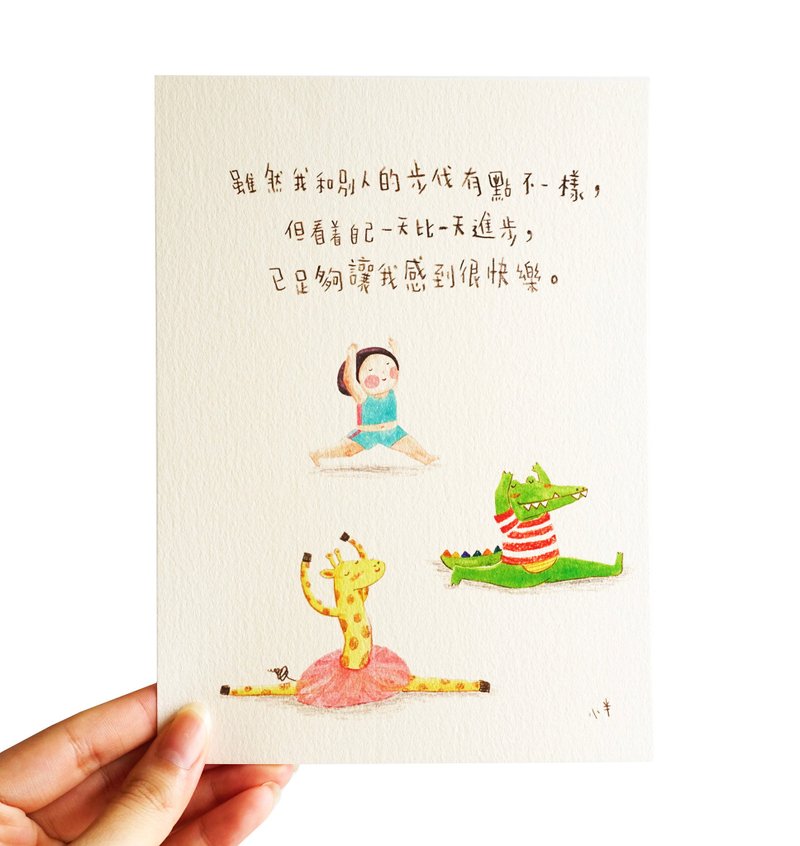 雖然我和別人的步伐有點不一樣，
但看着自己一天比一天進步，
已足夠讓我感到很快樂。
小羊